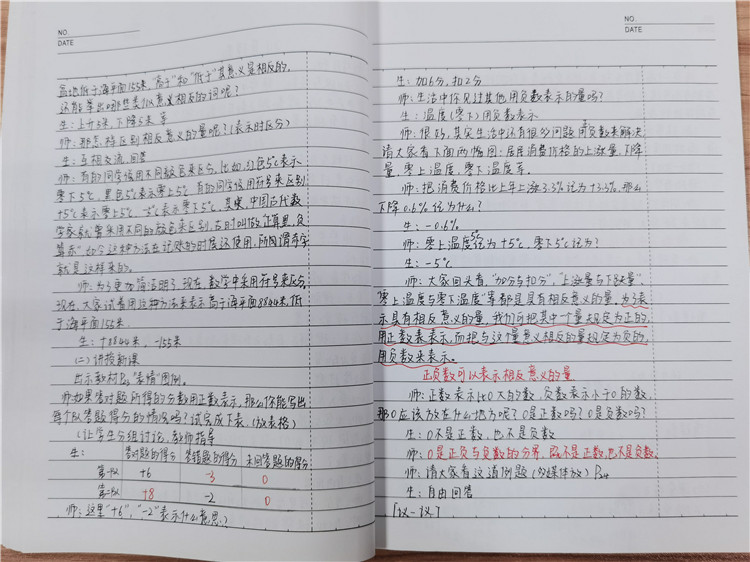 NO.
DATE
盆地低于海平面155米,"高于"和"低于"其意义是相反的,
还能举出哪些类似意义相反的词呢?
生:上升5米,下降5米等
师:那怎样区别相反意义的量呢?(表示时区分)
生:互相交流,回答
师:有的同学说用不同颜色来区分,比如,红色5℃表示
零下5℃,黑色5℃表示零上5℃ 有的同学说用符号来区别
+5℃表示零上5℃,-5℃表示零下5℃,其实,中国古代数
学家就曾采用不同的颜色来区别,古时叫做"正算黑,负
算赤".如今这种方法在记账的时候还使用,所谓"赤字"
就是这样来的。
师:为了更加简洁明了,现在,数学中采用符号来区分,
现在,大家试着用这种方法来表示高于海平面8844米,低
于海平面155米.
生:+8844米,-155米
(二)讲授新课
出示教材P "表情"图例。
师如果答对题所得的分数用正数表示,那么你能写出
每个队答题得分的情况吗?试完成下表.(放表格)
(让学生分组讨论,教师指导
生: 答对题的得分 答错题的得分 未回答题的得分
第一队 +6 -3 0
第二队 +8 -2 0
师:这里"+6","-2"表示什么意思?
NO.
DATE
生:加6分,扣2分
师:生活中你见过其他用负数表示的量吗?
生:温度(零下)用负数表示
师:很好,其实生活中还有很多问题用负数来解决
请大家看下面两幅图:居民消费价格的上涨量,下降
量,零上温度,零下温度等.
师:把消费价格比上年上涨3.3%记为+3.3%,那么
下降0.6%记为什么?
生:-0.6%
师:零上温度5℃记为+5℃,零下5℃记为?
生:-5℃
师:大家回头看,"加分与扣分","上涨量与下跌量"
零上温度与零下温度"等都是具有相反意义的量,为了表
示具有相反意义的量,我们可把其中一个量规定为正的,
用正数来表示,而把与这个量意义相反的量规定为负的,
用负数来表示。
正负数可以表示相反意义的量
师:正数表示比0大的数,负数表示小于0的数,
那0应该放在什么地方呢?0是正数吗?0是负数吗?
生:0不是正数,也不是负数
师:0是正负与负数的分界,既不是正数,也不是负数.
师:请大家看这道例题(多媒体放)P24
生:自由回答
[议一议]